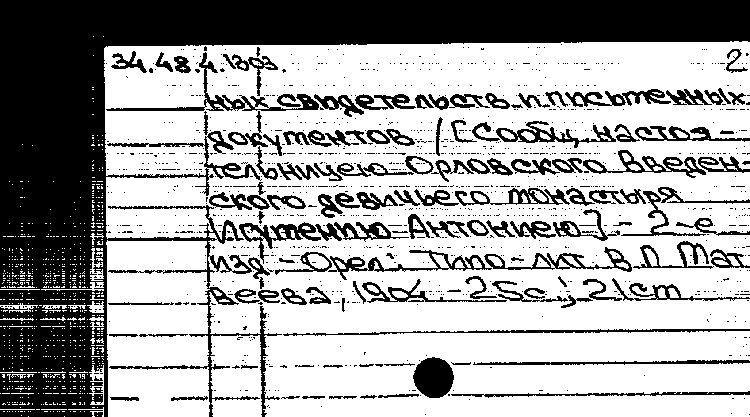 34.48.4.1303. 2
ных свидетельств и письменных
документов / [Сообщ. настоя-
тельницею Орловского Введен-
ского девичьего монастыря
Игумению Антониею]. - 2-е
изд. - Орел: Типо-лит. В.П. Мат
веева, 1904. - 25с.; 21cm